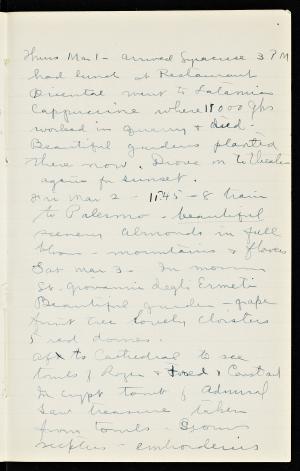 Thurs Mar 1 - arrived Syracuse 3 P M
had lunch at Restaurant
Oriental went to Latamia
Cappucine where 18000 Gks
worked in quarry & died -
Beautiful gardens planted
there now. Drove on to theatre
again for sunset.
Fri Mar 2 - 11:45 - 8 train
to Palermo - beautiful
scenery almonds in full
bloom - mountains & flowers
Sat Mar 3 - In morning
St. Giovanni degli Ermeti
Beautiful garden - grape
fruit tree lovely cloisters
5 red domes.
aft to Cathedral to see
tombs of Roger & Fred & Constad
In crypt tomb of Admiral
Saw treasure taken
from tombs - crowns
- embroideries